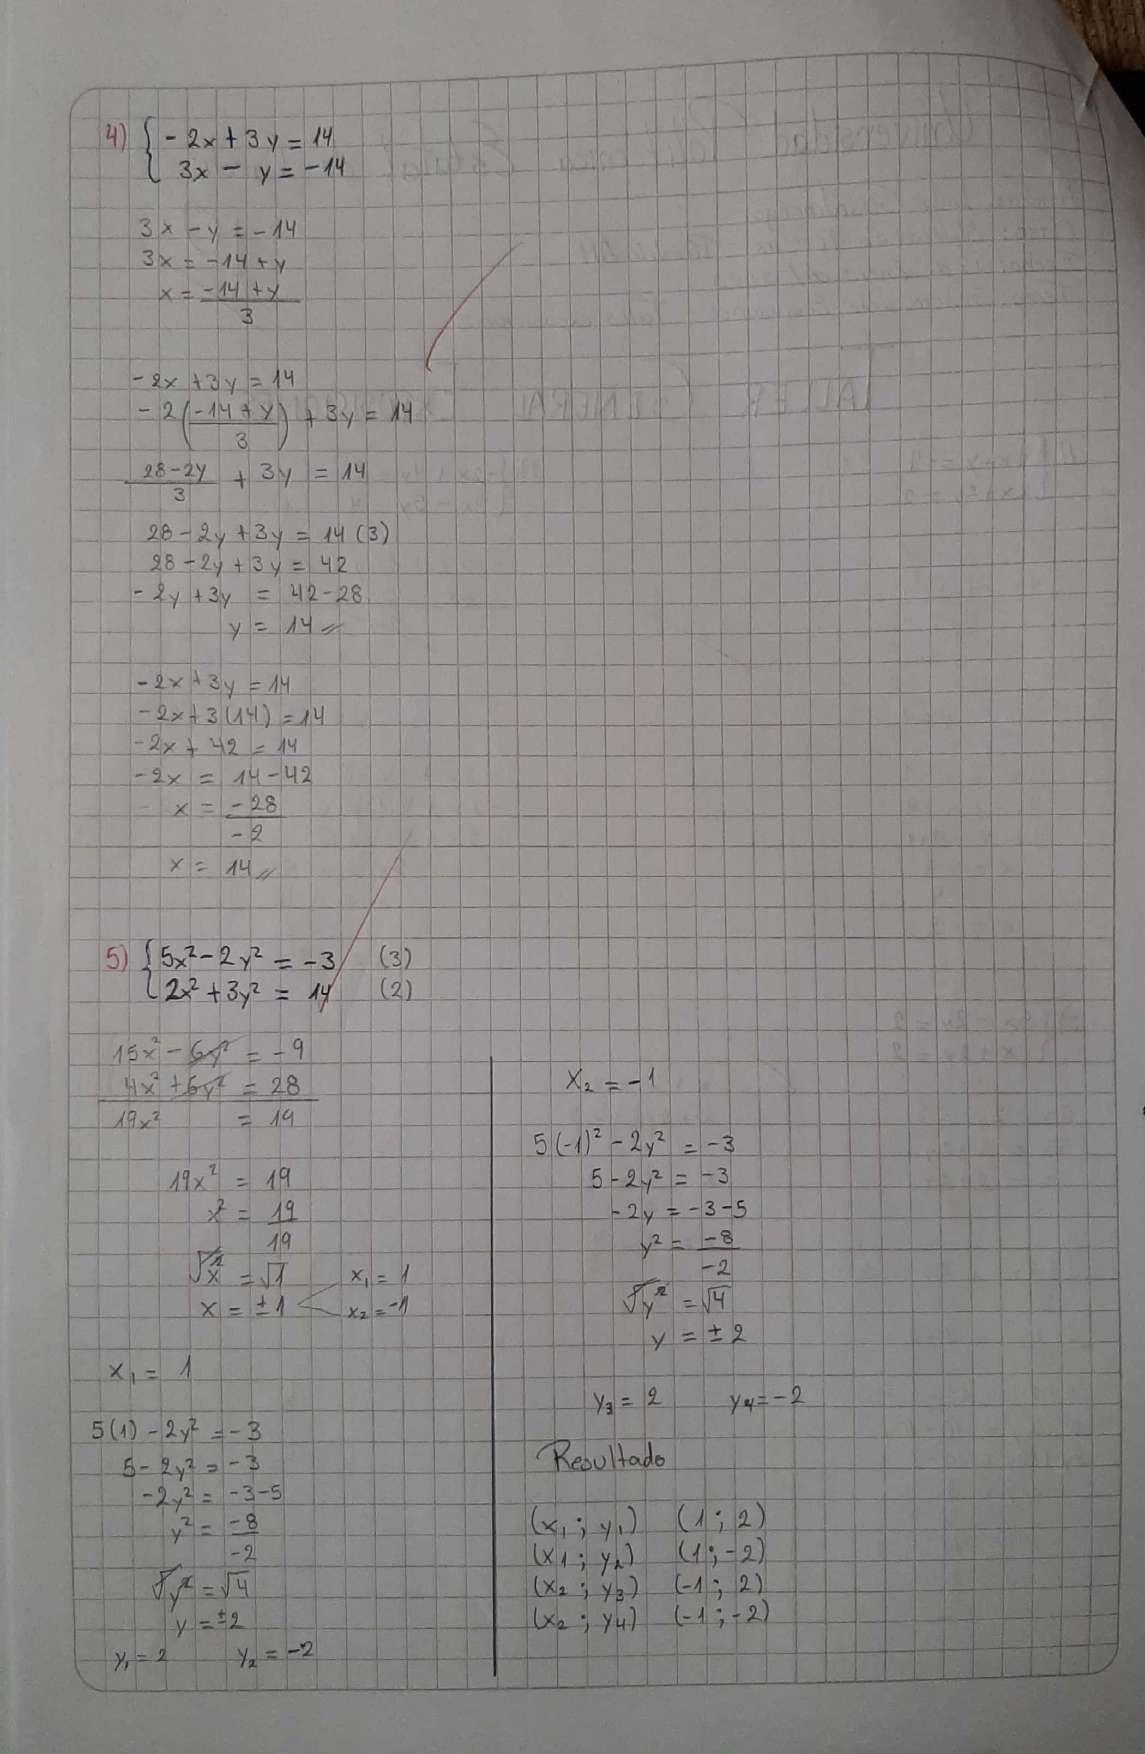 4) { - 2x + 3y = 14
3x - y = -14
3x - y = -14
3x = -14 + y
x = -14 + y
3
-2x + 3y = 14
-2(-14 + y) + 3y = 14
3
28 - 2y + 3y = 14
3
28 - 2y + 3y = 14 (3)
28 - 2y + 3y = 42
-2y + 3y = 42 - 28
y = 14 //
-2x + 3y = 14
-2x + 3(14) = 14
-2x + 42 = 14
-2x = 14 - 42
x = -28
-2
x = 14 //
5) { 5x² - 2y² = -3 (3)
2x² + 3y² = 14 (2)
15x² - 6y² = -9
4x² + 6y² = 28
19x² = 19
19x² = 19
x² = 19
19
√x² = √1
x = ±1
x₁ = 1
x₂ = -1
x₁ = 1
5(1) - 2y² = -3
5 - 2y² = -3
-2y² = -3 - 5
y² = -8
-2
√y² = √4
y = ±2
y₁ = 2 y₂ = -2
x₂ = -1
5(-1)² - 2y² = -3
5 - 2y² = -3
-2y = -3 - 5
y² = -8
-2
√y² = √4
y = ±2
y₃ = 2 y₄ = -2
Resultado
(x₁ ; y₁) (1 ; 2)
(x₁ ; y₂) (1 ; -2)
(x₂ ; y₃) (-1 ; 2)
(x₂ ; y₄) (-1 ; -2)